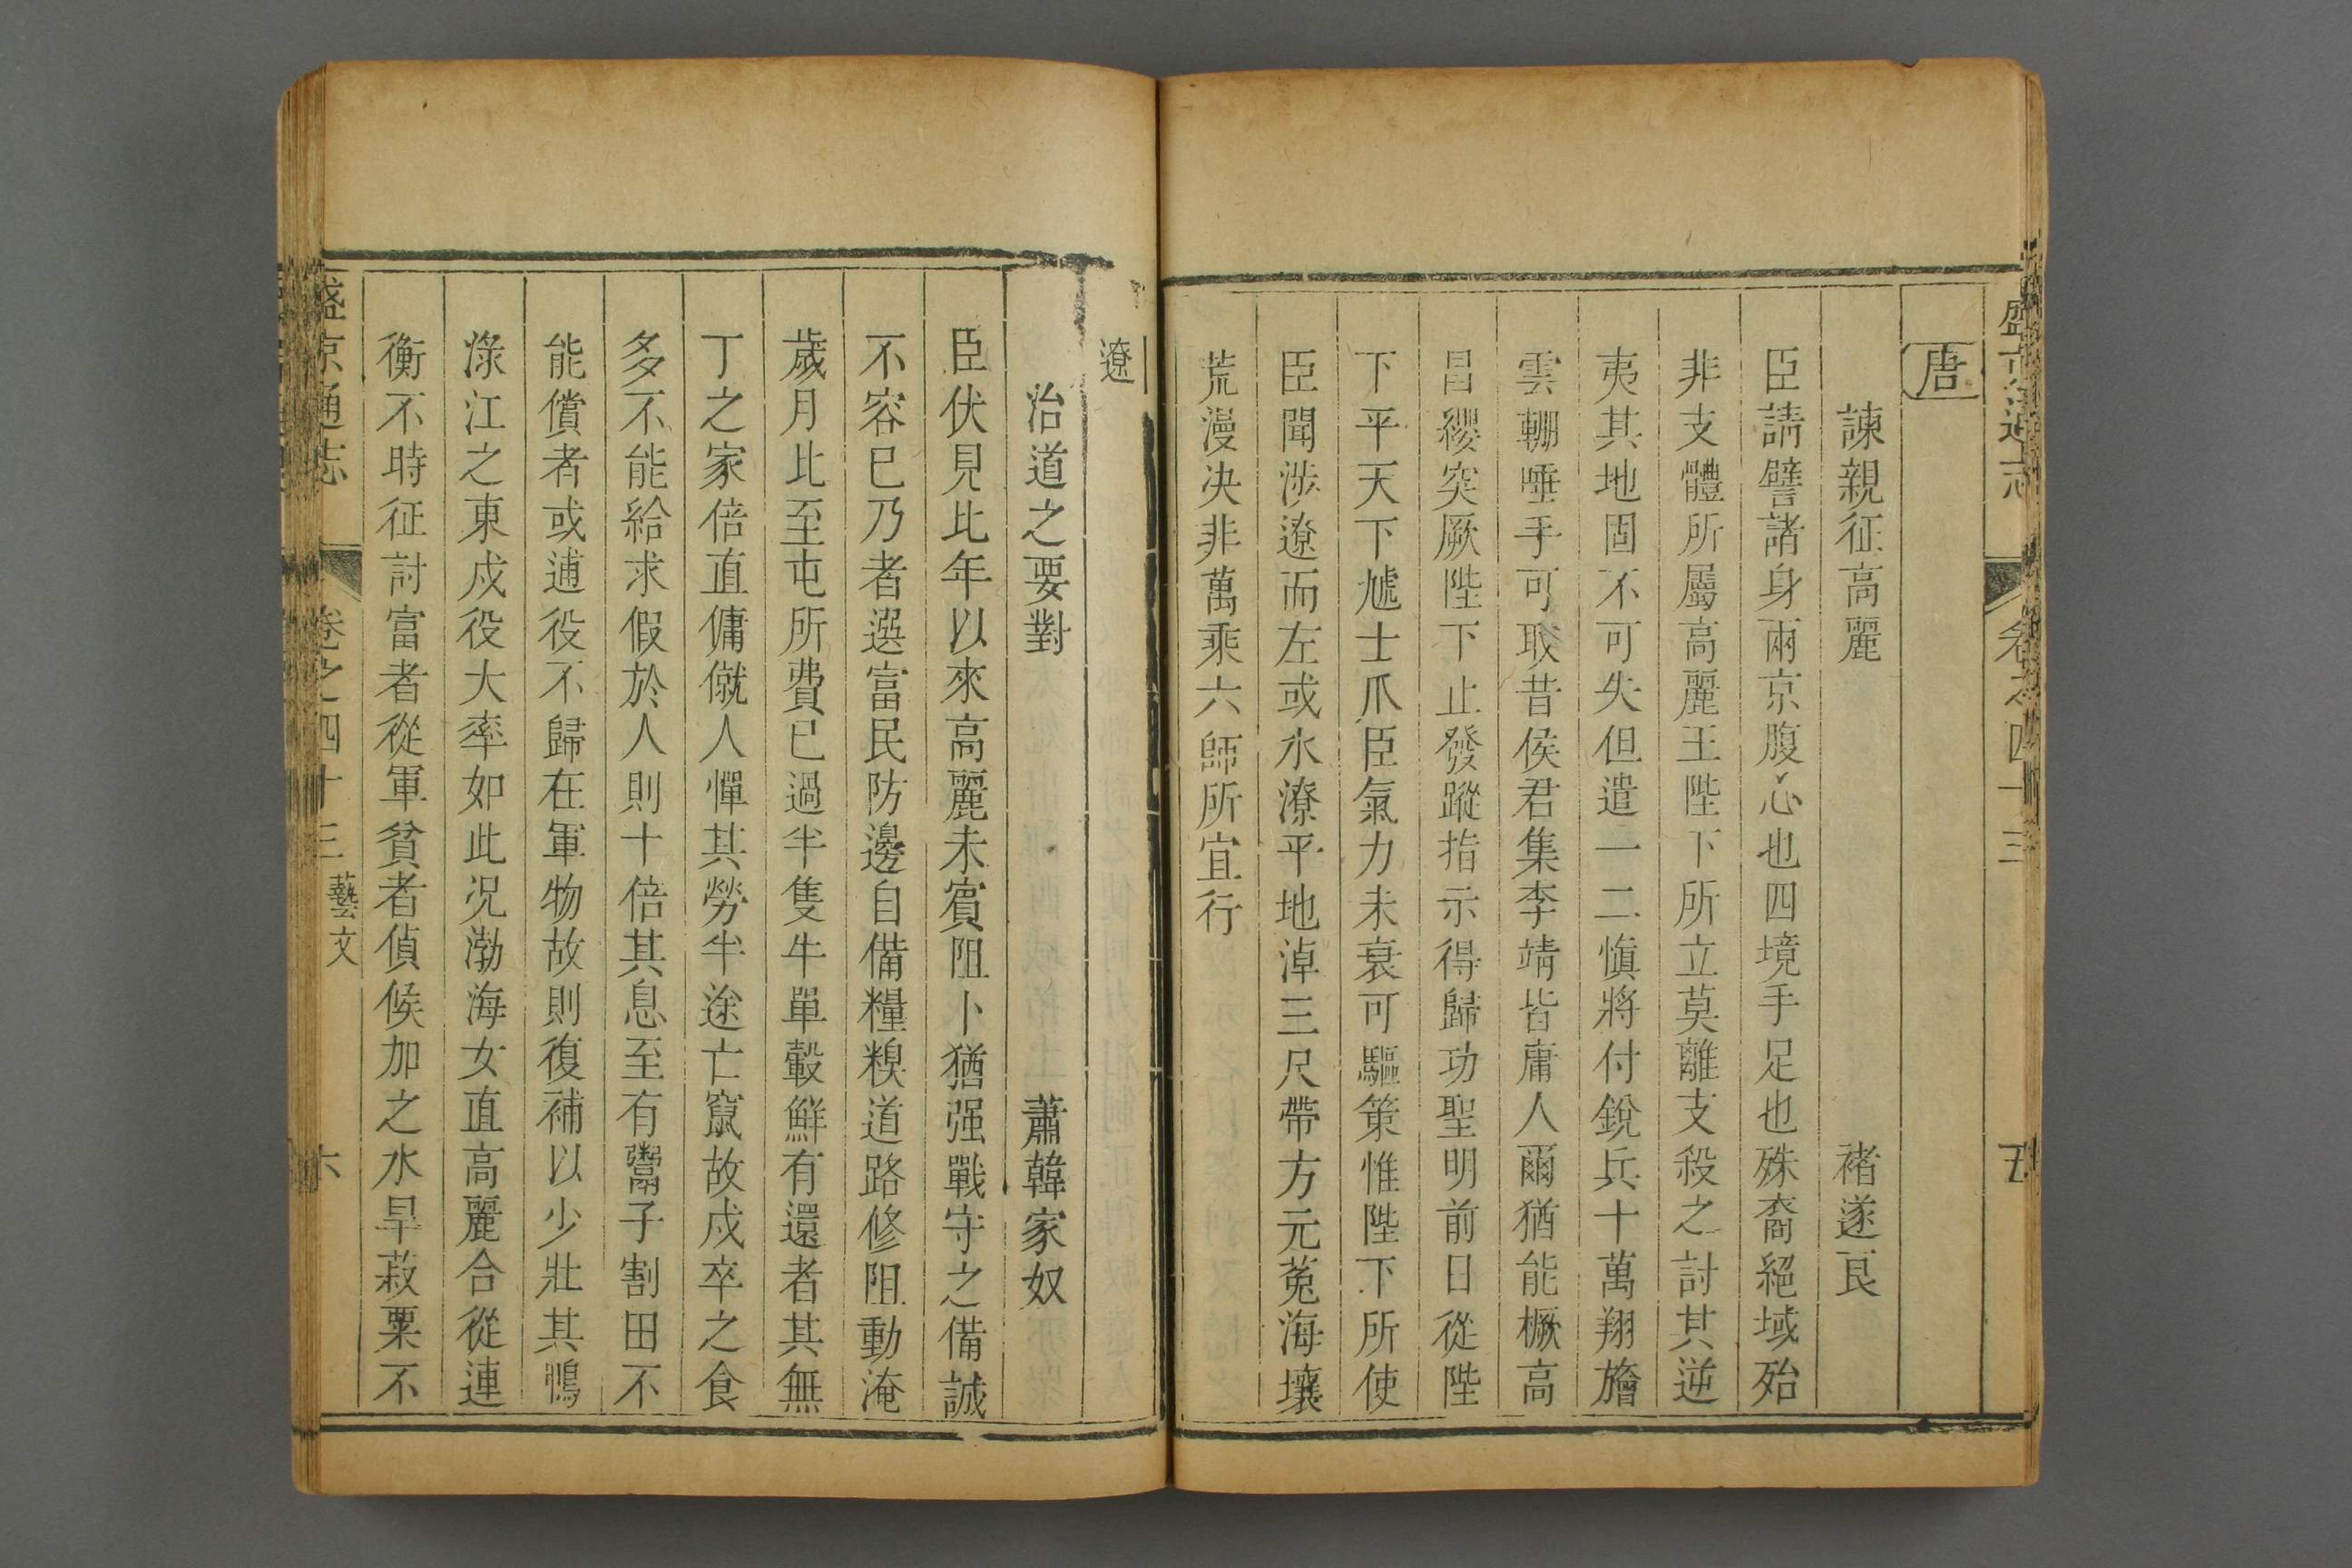 盛京通志 卷之四十三 五
唐
諫親征高麗 褚遂良
臣請譬諸身兩京腹心也四境手足也殊裔絕域殆
非支體所屬高麗王陛下所立莫離支殺之討其逆
夷其地固不可失但遣一二愼將付銳兵十萬翔旝
雲輣唾手可取昔侯君集李靖皆庸人爾猶能橛高
昌纓突厥陛下止發蹤指示得歸功聖明前日從陛
下平天下虓士爪臣氣力未衰可驅策惟陛下所使
臣聞涉遼而左或水潦平地淖三尺帶方元菟海壤
荒漫决非萬乘六師所宜行
遼
治道之要對 蕭韓家奴
臣伏見比年以來高麗未賓阻卜猶强戰守之備誠
不容已乃者選富民防邊自備糧糗道路修阻動淹
歲月比至屯所費已過半隻牛單轂鮮有還者其無
丁之家倍直傭僦人憚其勞半途亡竄故戍卒之食
多不能給求假於人則十倍其息至有鬻子割田不
能償者或逋役不歸在軍物故則復補以少壯其鴨
淥江之東戍役大率如此况渤海女直高麗合從連
衡不時征討富者從軍貧者偵候加之水旱菽粟不
盛京通志 卷之四十三 藝文 六